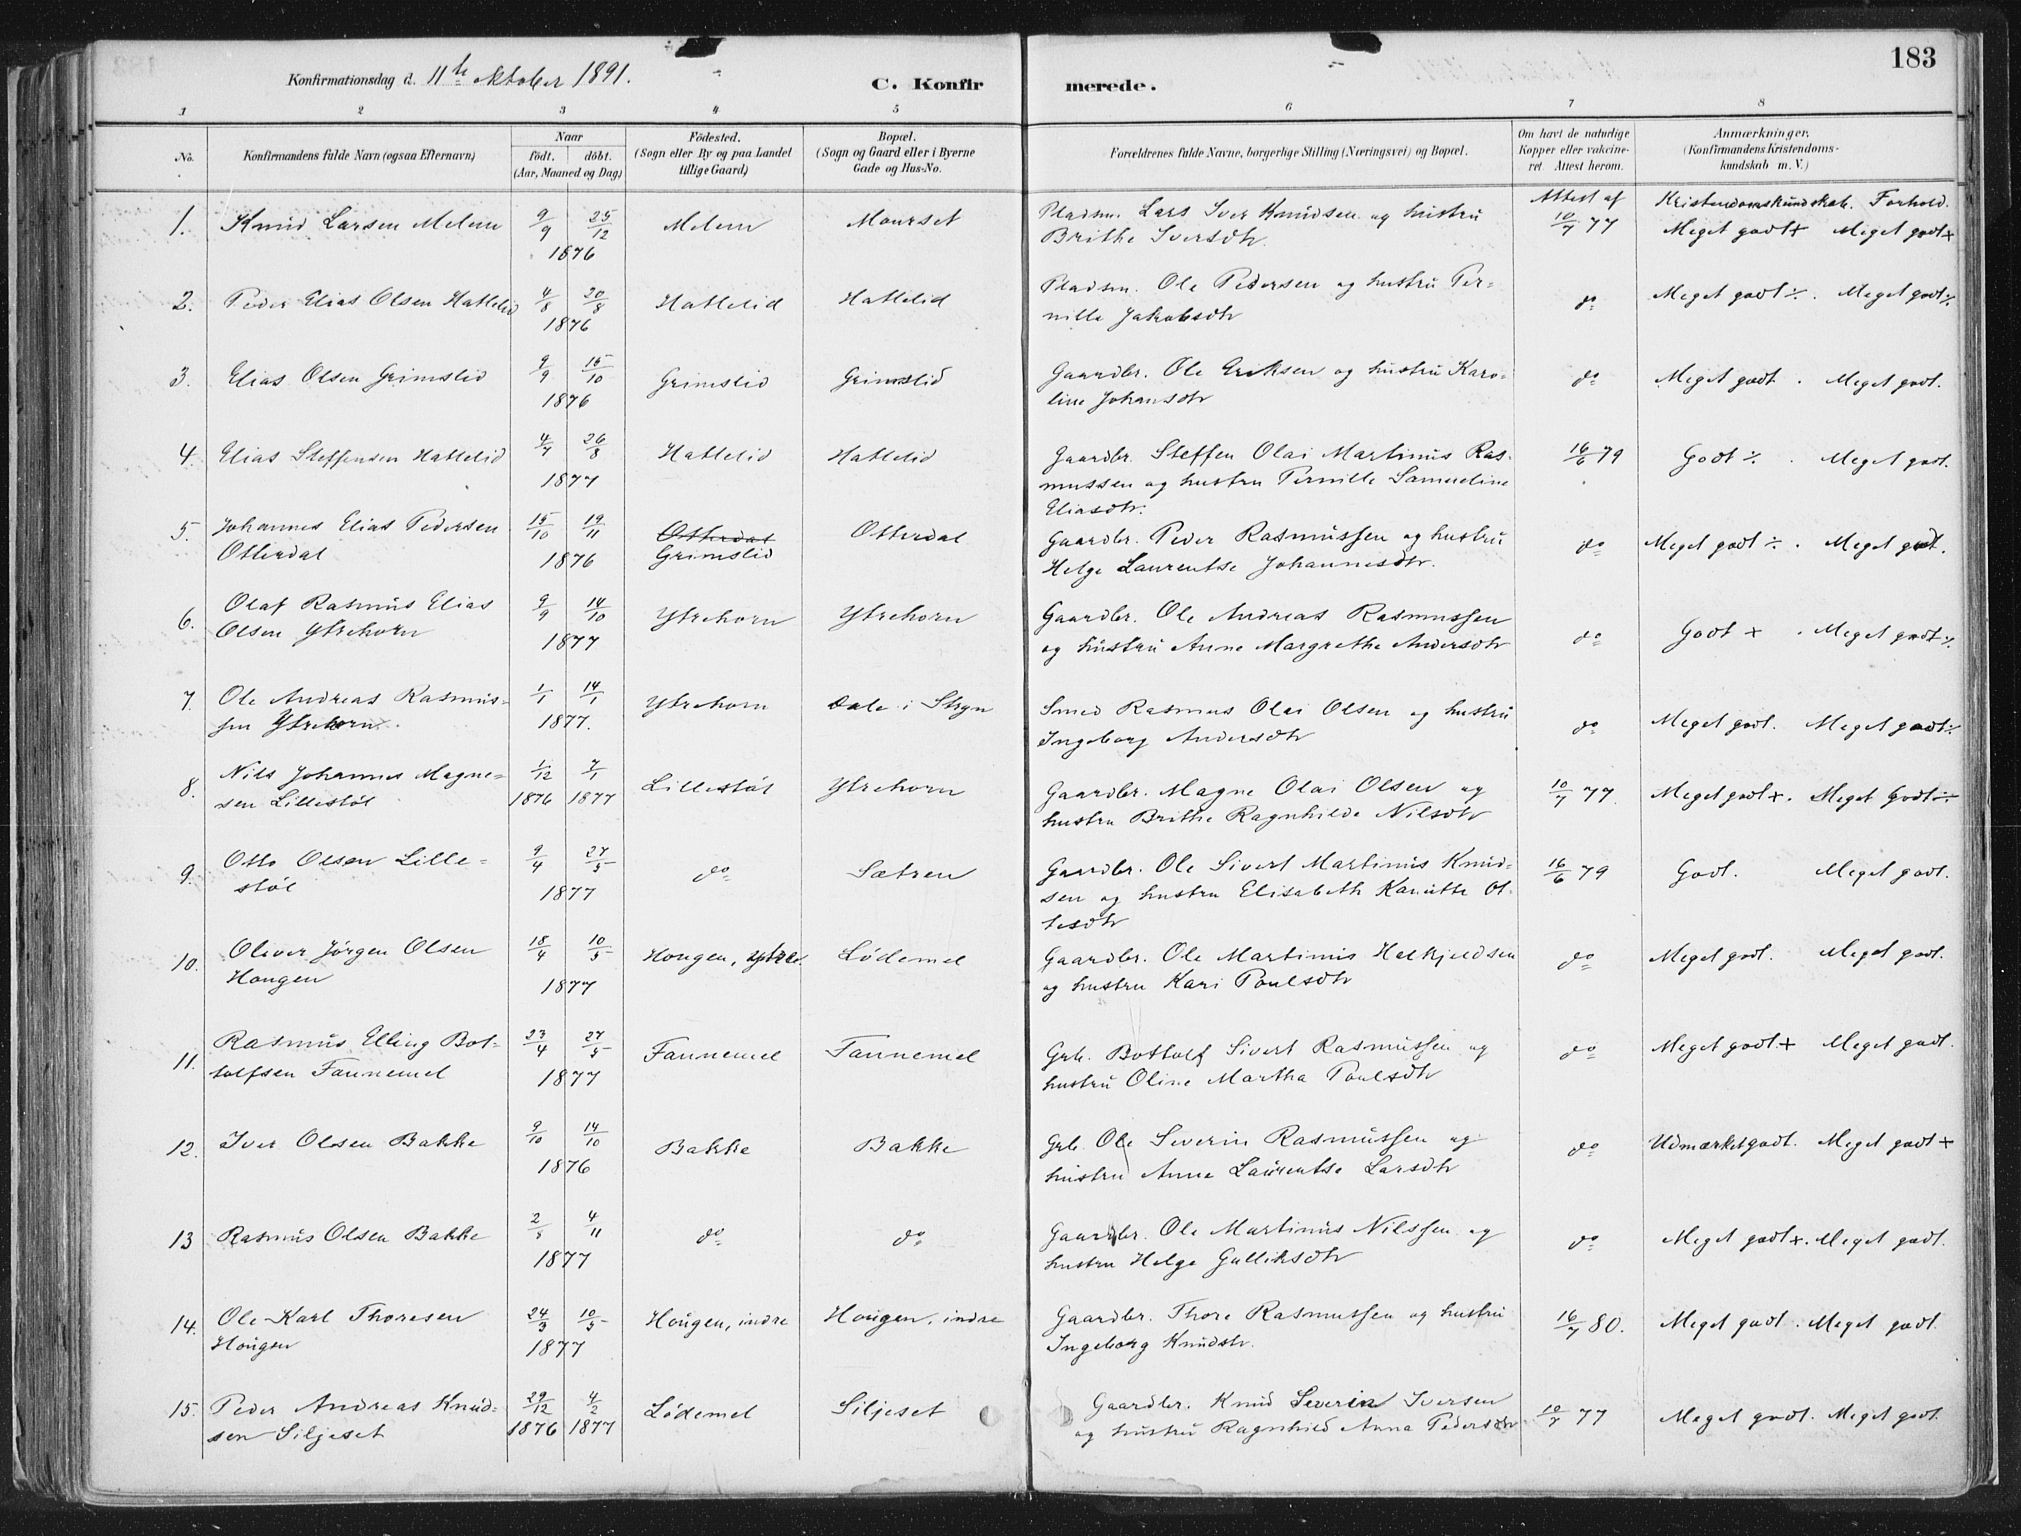 Konfirmationsdag d. 11te oktober 1891.
C. Konfirmerede.
183
1 2 3 4 5 6 7 8
No. Konfirmandens fulde Navn (ogsaa Efternavn) Naar födt. döbt. (Aar, Maaned og Dag) Födested. (Sogn eller By og paa Landet tillige Gaard) Bopæl. (Sogn og Gaard eller i Byerne Gade og Hus-No. Forældrenes fulde Navne, borgerlige Stilling (Næringsvei) og Bopæl. Om havt de naturlige Kopper eller vakcineret. Attest herom. Anmærkninger. (Konfirmandens Kristendomskundskab m. V.)
Attest af Kristendomskundskab. Forhold.
1. Knud Larsen Melem 9/9 25/12 1876 Melem Mourset Pladsm. Lars Iver Knudsen og hustru
Brithe Iversdtr. 10/7 77 Meget godt+ Meget godt+
2. Peder Elias Olsen Hattelid 4/8 20/8 1876 Hattelid Hattelid Pladsm. Ole Pedersen og hustru Per-
nille Jakobsdtr do Meget godt÷. Meget godt÷
3. Elias Olsen Grimslid 9/9 15/10 1876 Grimslid Grimslid Gaardbr. Ole Eriksen og hustru Karo-
line Johansdtr do Meget godt. Meget godt.
4. Elias Steffensen Hattelid 4/7 26/8 1877 Hattelid Hattelid Gaardbr. Steffen Olai Martinus Ras-
mussen og hustru Pernille Samueline
Eliasdtr. 16/6 79 Godt÷. Meget godt.
5. Johannes Elias Pedersen
Otterdal 15/10 19/11 1876 Otterdal
Grimslid Otterdal Gaardbr. Peder Rasmussen og hustru
Helge Laurentse Johannesdtr. do Meget godt÷. Meget godt.
6. Olaf Rasmus Elias
Olsen Ytrehorn 9/9 14/10 1877 Ytrehorn Ytrehorn Gaardbr. Ole Andreas Rasmussen
og hustru Anne Margrethe Andersdtr do Godt+. Meget godt÷
7. Ole Andreas Rasmus-
sen Ytrehorn. 1/1 14/1 1877. Ytrehorn Dale i Stryn Smed Rasmus Olai Olsen og hustru
Ingeborg Andersdtr do Meget godt. Meget godt÷
8. Nils Johannes Magne-
sen Lillestøl 1/12 1876 7/1 1877 Lillestøl Ytrehorn Gaardbr. Magne Olai Olsen og
hustru Brithe Ragnhilde Nilsdtr 10/7 77. Meget godt+. Meget Godt÷
9. Otto Olsen Lille-
støl 9/4 27/5 1877 do Sætren Gaardbr. Ole Sivert Martinus Knud-
sen og hustru Elisabeth Kanutte Ot-
tesdtr 16/6 79 Godt. Meget godt.
10. Oliver Jørgen Olsen
Hougen 18/4 10/5 1877 Hougen, ytre. Lødemel Gaardbr. Ole Martinus Helkjeldsen
og hustru Kari Poulsdtr do Meget godt. Meget godt.
11. Rasmus Elling Bot-
tolfsen Fannemel 23/4 27/5 1877 Fannemel Fannemel Grb. Bottolf Sivert Rasmussen og
hustru Oline Martha Poulsdtr do Meget godt+ Meget godt.
12. Iver Olsen Bakke 9/10 14/10 1876 Bakke Bakke Grb. Ole Severin Rasmussen og
hustru Anne Laurentse Larsdtr do Udmærket godt. Meget godt+
13 Rasmus Olsen Bakke 4/11 1877 do do Gaardbr. Ole Martinus Nilssen og
hustru Helge Gulliksdtr do Meget godt+. Meget godt.
14. Ole Karl Thoresen
Hougen 24/3 10/5 1877 Hougen, indre Hougen, indre Gaardbr. Thore Rasmussen og hustru
Ingeborg Knudsdtr. 16/7 80. Meget godt. Meget godt.
15. Peder Andreas Knud-
sen Siljeset 29/12 1876 4/2 1877 Lødemel Siljeset Gaardbr. Knud Severin Iversen
og hustru Ragnhild Anna Pedersdtr 10/7 77 Meget godt. Meget godt.